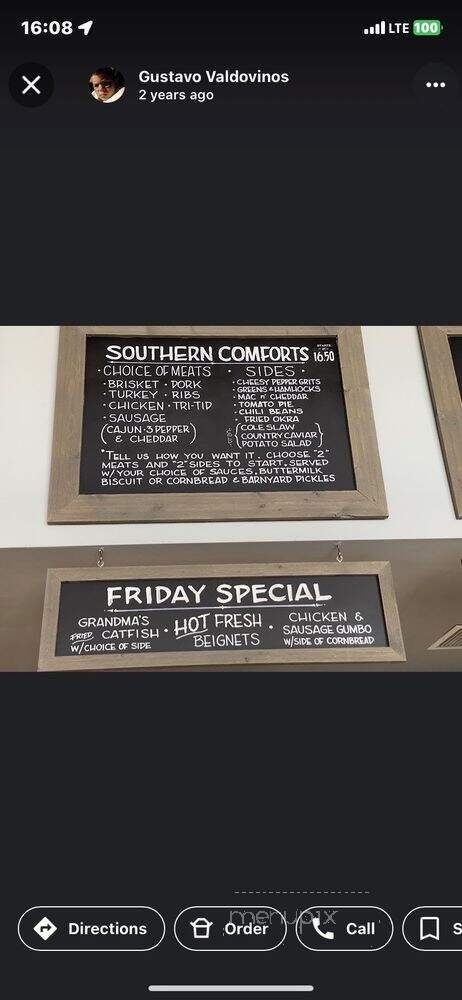 16:08
LTE 100
Gustavo Valdovinos
2 years ago
SOUTHERN COMFORTS
16.50
· CHOICE OF MEATS · SIDES ·
· BRISKET · PORK
· TURKEY · RIBS
· CHICKEN · TRI-TIP
· SAUSAGE
(CAJUN·3 PEPPER
& CHEDDAR)
· CHEESY PEPPER GRITS
· GREENS & HAMHOCKS
· MAC N' CHEDDAR
· TOMATO PIE
· CHILI BEANS
· FRIED OKRA
{COLE SLAW
COUNTRY CAVIAR
POTATO SALAD}
*TELL US HOW YOU WANT IT. CHOOSE "2"
MEATS AND "2" SIDES TO START. SERVED
W/YOUR CHOICE OF SAUCES, BUTTERMILK
BISCUIT OR CORNBREAD & BARNYARD PICKLES
FRIDAY SPECIAL
GRANDMA'S
FRIED CATFISH ·
W/CHOICE OF SIDE
HOT FRESH
BEIGNETS ·
CHICKEN &
SAUSAGE GUMBO
W/SIDE OF CORNBREAD
menupix
Directions
Order
Call
S